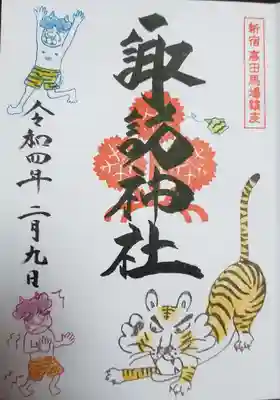 新宿高田馬場鎮座
諏訪神社
令和四年 二月九日